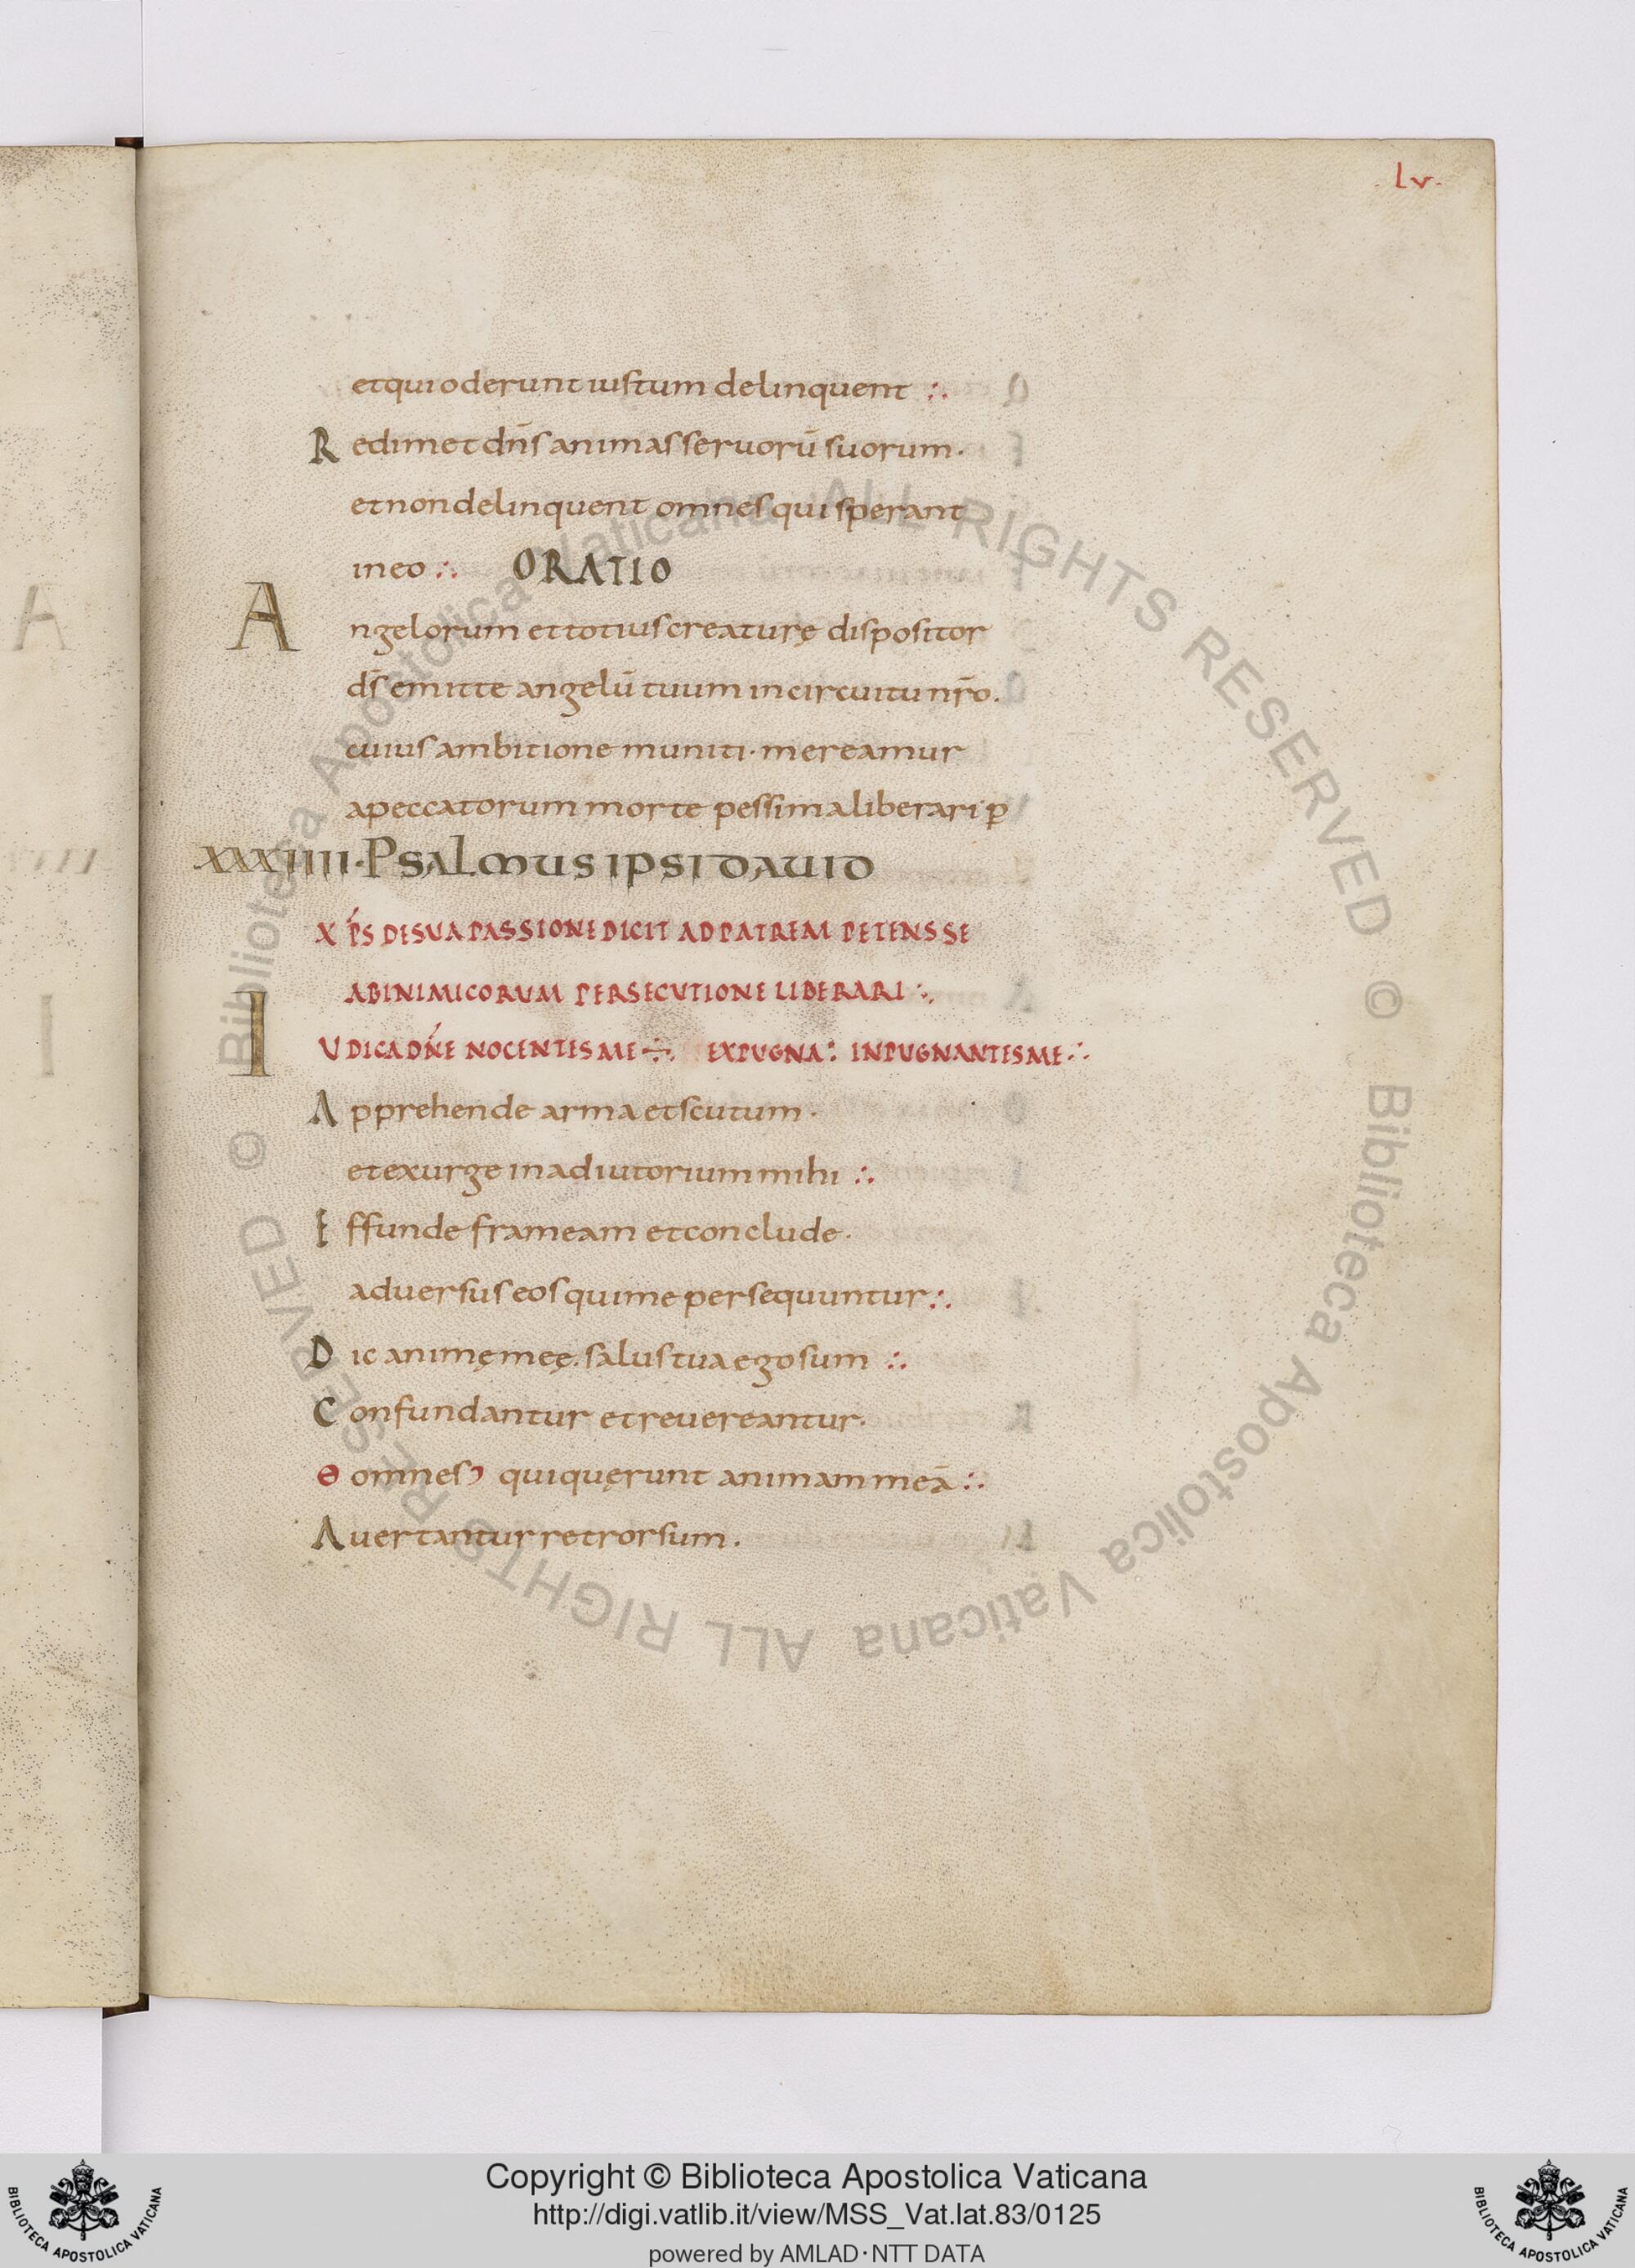 Lv.
et qui oderunt iustum delinquent ∴
Redimet dn̄s animas seruorū suorum.
et non delinquent omnes qui sperant
in eo ∴ ORATIO
Angelorum et totius creaturę dispositor
ds̄ emitte angelū tuum in circuitu nr̄o.
cuius ambitione muniti · mereamur
a peccatorum morte pessima liberari p̄
XXXIIII · PSALMUS IPSI DAUID
XP̄S DE SUA PASSIONE DICIT AD PATREM PETENS SE
AB INIMICORUM PERSECUTIONE LIBERARI ∴
IUDICA DN̄E NOCENTES ME ÷ EXPUGNA: INPUGNANTES ME ∴
Apprehende arma et scutum ·
et exurge in adiutorium mihi ∴
Effunde frameam et conclude ·
aduersus eos qui me persequuntur ∴
Dic animę meę. salus tua ego sum ∴
Confundantur et reuereantur.
Ɵ omnes ꓹ qui quęrunt animam meā ∴
Auertantur retrorsum.
© Biblioteca Apostolica Vaticana ALL RIGHTS RESERVED © Biblioteca Apostolica Vaticana ALL RIGHTS RESERVED
BIBLIOTECA APOSTOLICA VATICANA
Copyright © Biblioteca Apostolica Vaticana
http://digi.vatlib.it/view/MSS_Vat.lat.83/0125
powered by AMLAD·NTT DATA
BIBLIOTECA APOSTOLICA VATICANA